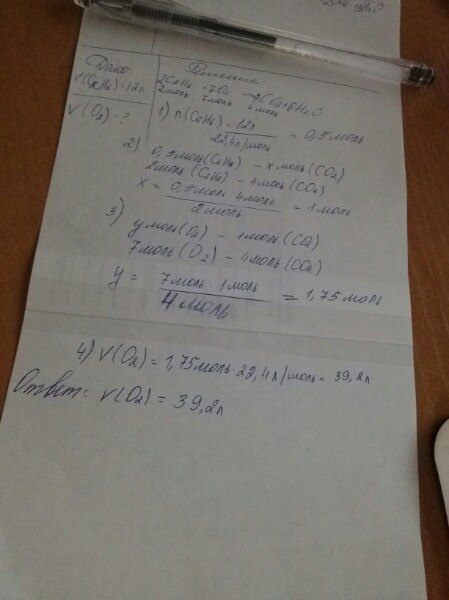 Дано:
V(C₂H₆) = 12л
V(O₂) - ?
Решение
2C₂H₆ + 7O₂ → 4CO₂ + 6H₂O
2моль 7моль 4моль
1) n(C₂H₆) = 12л / 22,4л/моль = 0,5моль
2) 0,5моль(C₂H₆) - xмоль(CO₂)
2моль(C₂H₆) - 4моль(CO₂)
x = 0,5моль · 4моль / 2моль = 1моль
3) yмоль(O₂) - 1моль(CO₂)
7моль(O₂) - 4моль(CO₂)
y = 7моль · 1моль / 4моль = 1,75моль
4) V(O₂) = 1,75моль · 22,4л/моль = 39,2л
Ответ: V(O₂) = 39,2л